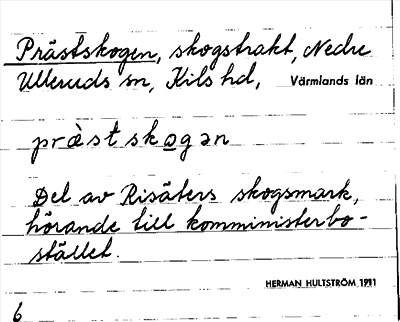 Prästskogen, skogstrakt, Nedre
Ulleruds sn, Kils hd, Värmlands län
præ̀stsko̲gən
Del av Risäters skogsmark,
hörande till komministerbo-
stället.
HERMAN HULTSTRÖM 1911
6